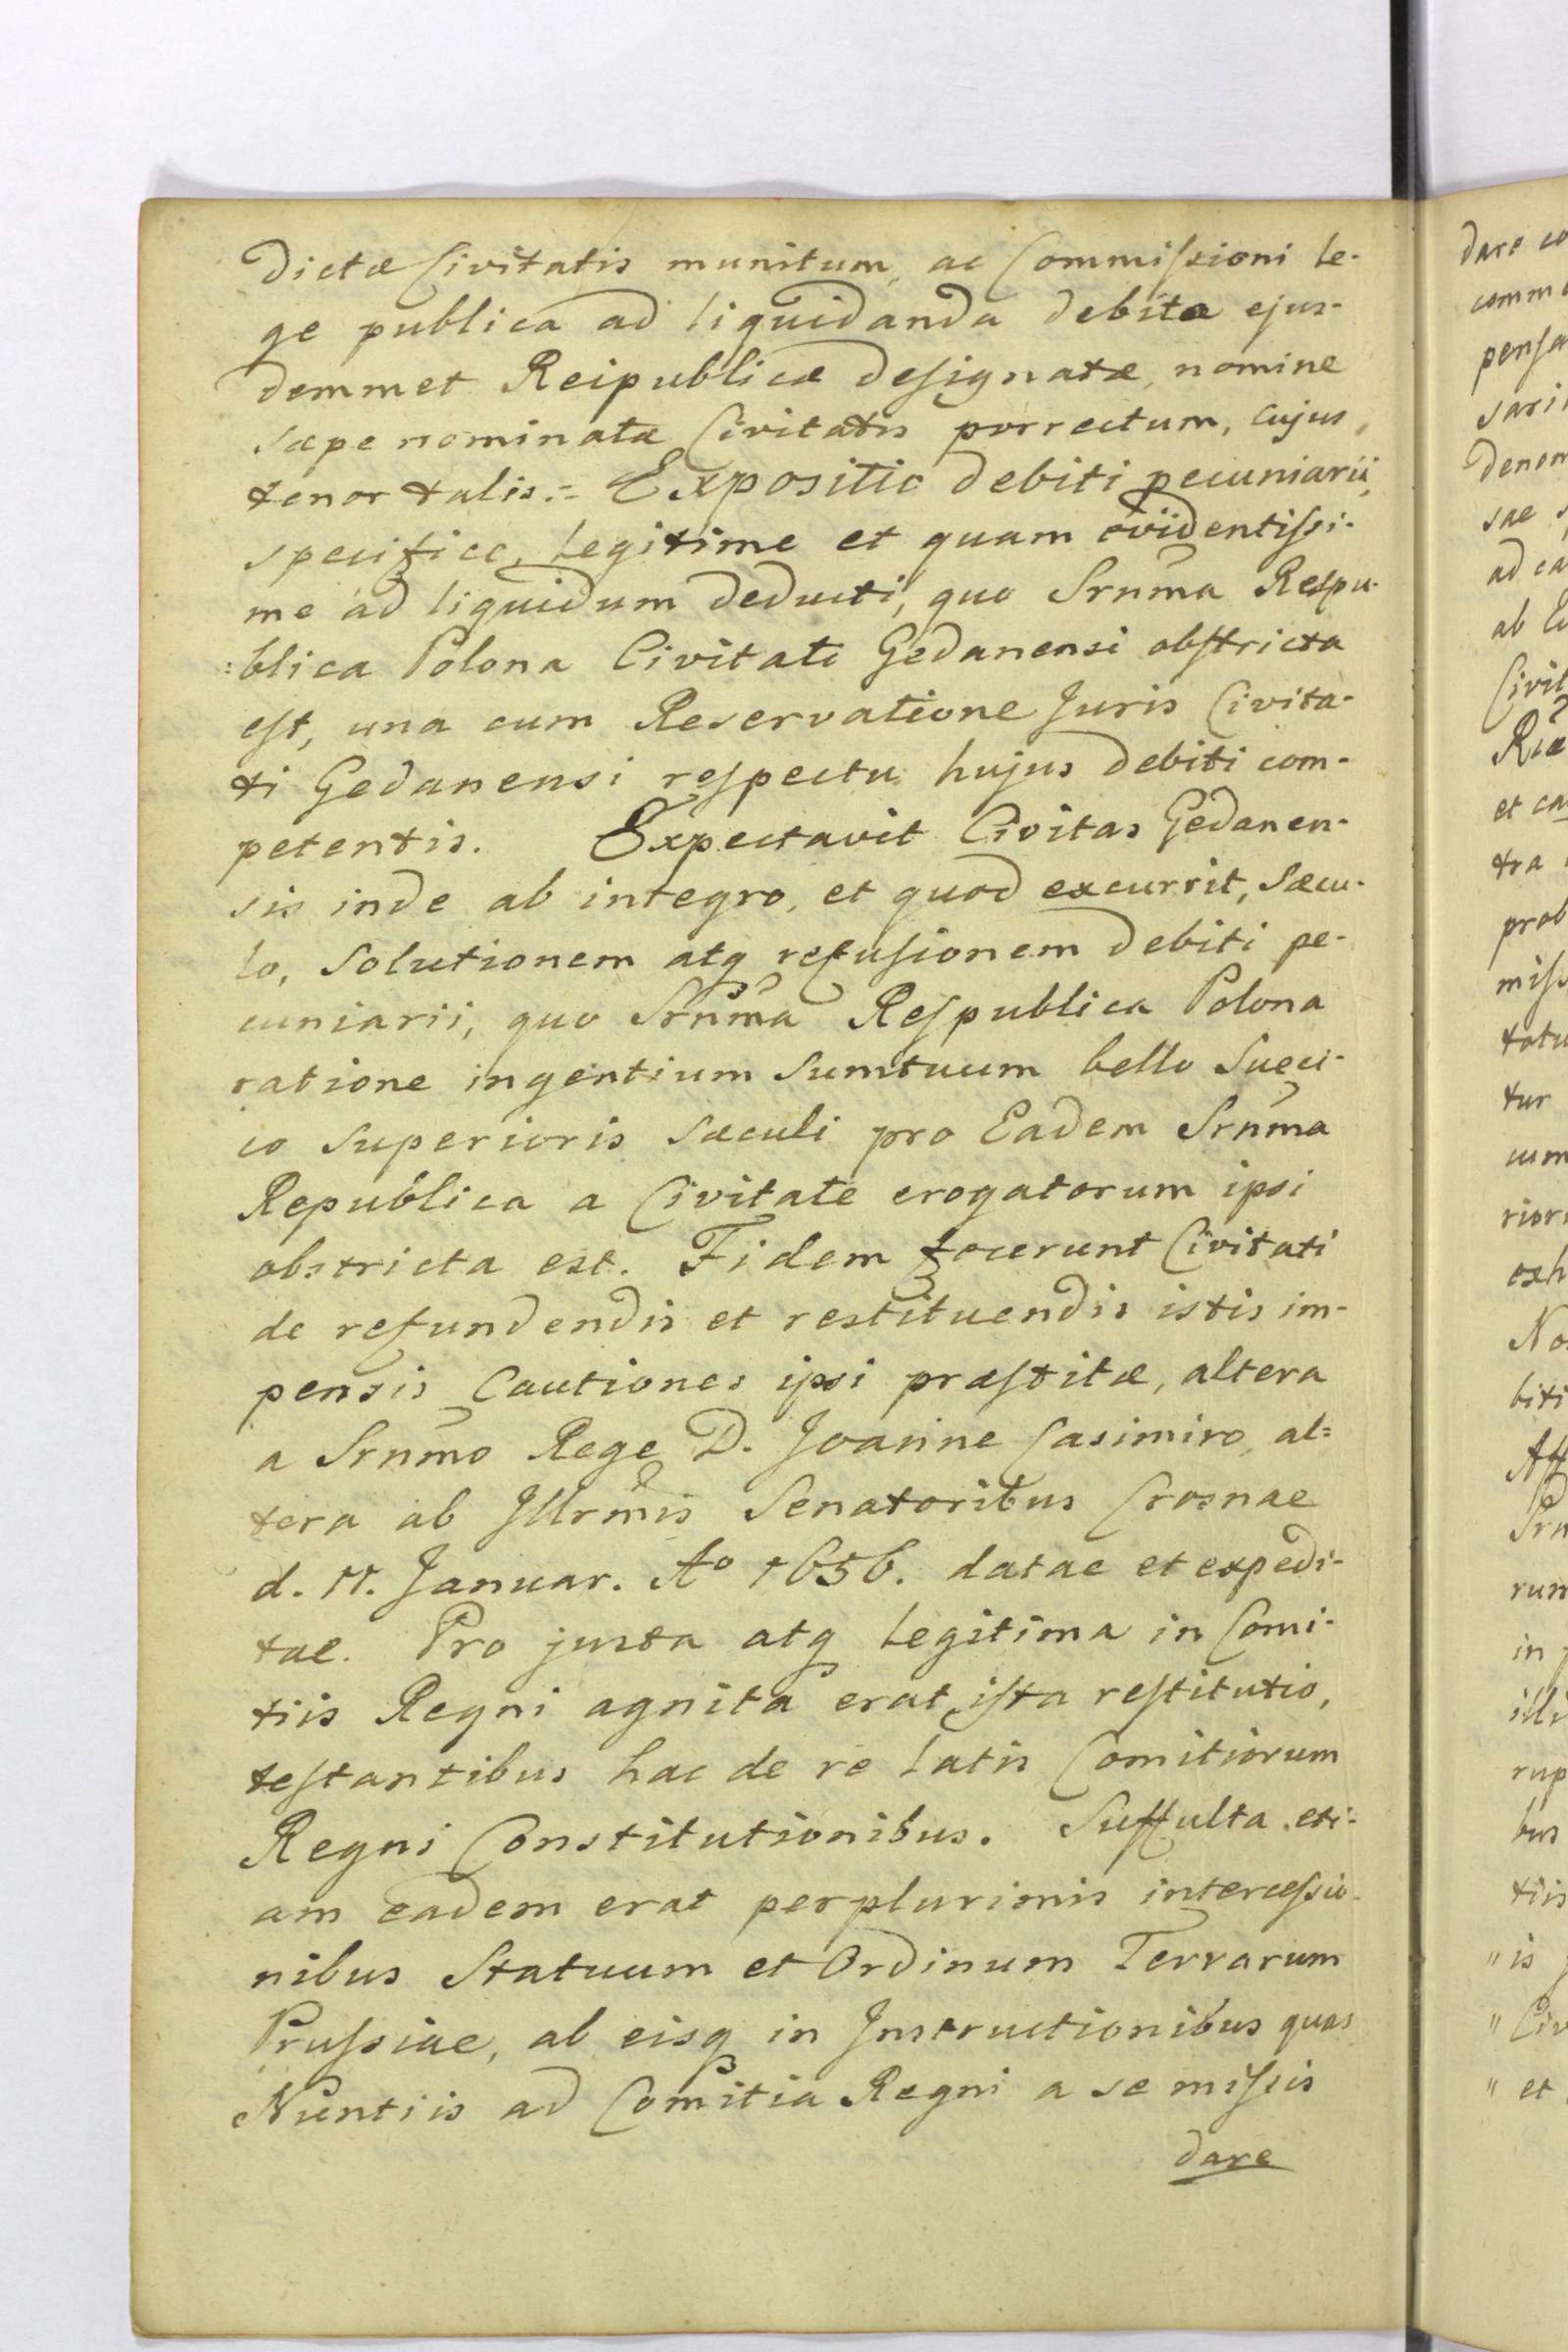 dictæ Civitatis munitum, ac Commiſsioni le-
ge publica ad liquidanda debita ejus-
demmet Reipublicæ deſignatæ, nomine
sæpe nominatæ Civitatis porrectum, cujus
tenor talis:= Expositio debiti pecuniarii,
specifice, legitime et quam evidentiſsi-
me ad liquidum deducti, quo Srnm̃a Reſpu-
:blica Polona Civitati Gedanensi obſtricta
eſt, una cum Reservatione Juris Civita-
ti Gedanensi reſpectu hujus debiti com-
petentis. Expectavit Civitas Gedanen-
sis inde ab integro, et quod excurrit, Sæcu-
lo, Solutionem atq refuſionem debiti pe-
cuniarii, quo Srnm̃a Reſpublica Polona
ratione ingentium Sumtuum bello Sueci-
co Superioris Sæculi pro Eadem Srnm̃a
Republica a Civitate erogatorum ipsi
obstricta est. Fidem fecerunt Civitati
de refundendis et restituendis istis im-
pensis Cautiones ipsi præſtitæ, altera
a Srnm̃o Rege D. Joanne Casimiro, al=
tera ab Jllrm̃is Senatoribus Crosnae
d. 11. Januar. Aº 1656. datae et expedi-
tae. Pro justa atq legitima in Comi-
tiis Regni agnita erat iſta reſtitutio,
teſtantibus hac de re latis Comitiorum
Regni Constitutionibus. Suffulta eti-
am eadem erat perplurimis interceſsio-
nibus Statuum et Ordinum Terrarum
Pruſsiae, ab eisq in Jnstructionibus quas
Nuntiis ad Comitia Regni a se miſsis
dare